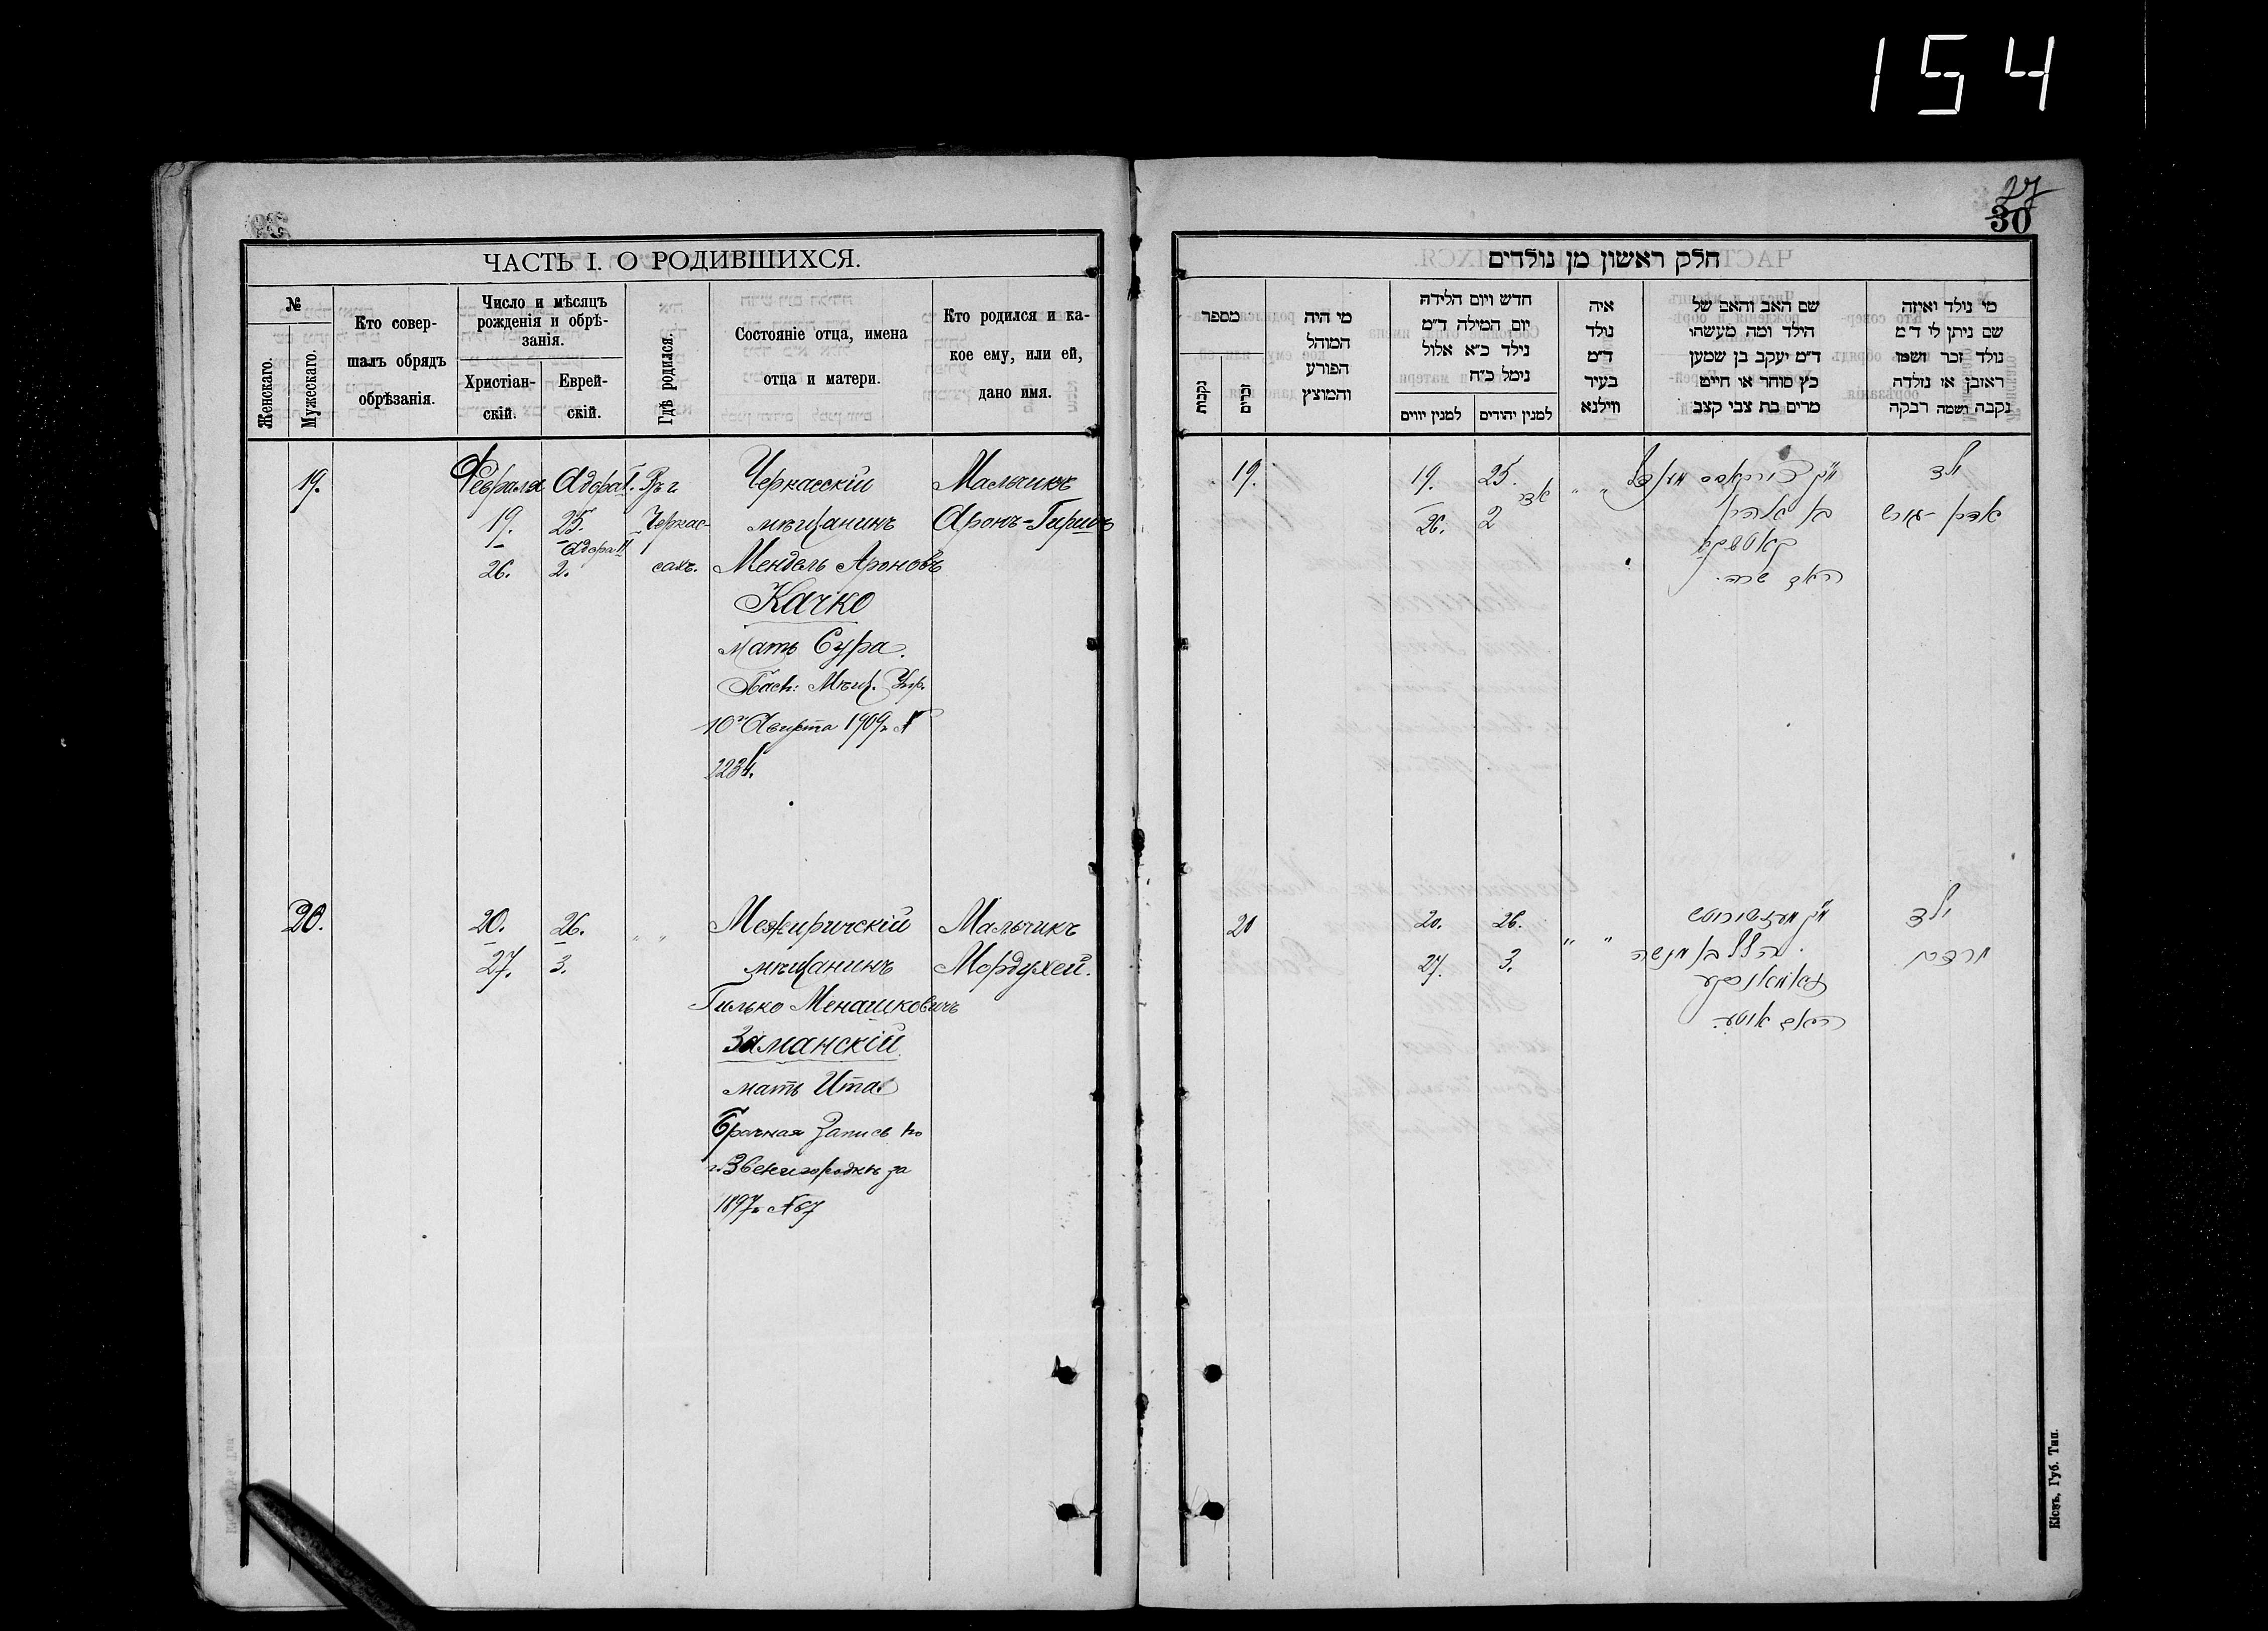 154
27
30
ЧАСТЬ I. О РОДИВШИХСЯ.
№
Женскаго.
Мужескаго.
Кто совер-
шалъ обрядъ
обрѣзанія.
Число и мѣсяцъ
рожденія и обрѣ-
занія.
Христіан-
скій.
Еврей-
скій.
Гдѣ родился.
Состояніе отца, имена
отца и матери.
Кто родился и ка-
кое ему, или ей,
дано имя.
19.
Февраля
19.
26.
Адора I.
25.
Адора II
2.
Въ г.
Черкас-
сахъ.
Черкасскій
мѣщанинъ
Мендель Ароновъ
Качко
мать Сура.
Пасп: Мѣщ. Упр.
10го Августа 1909г. №
2234.
Мальчикъ
Аронъ-Гиршъ
20.
20.
27.
26.
3.
" "
Межиричскій
мѣщанинъ
Гилько Менашковичъ
Заманскій
мать Ита
Брачная Запись по
г. Звенигородкѣ за
1897г. № 67
Мальчикъ
Мордухей.
חלק ראשון מן נולדים
מספר
נקבות
זכרים
מי היה
המוהל
הפורע
והמוצץ
חדש ויום הלידה
יום המילה ד״מ
נילד כ״א אלול
נימל כ״ח
למנין יווים
למנין יהודים
איה
נולד
ד״מ
בעיר
ווילנא
שם האב והאם של
הילד ומה מעשהו
ד״מ יעקב בן שמען
כץ סוחר או חייט
מרים בת צבי קצב
מי נולד ואיזה
שם ניתן לו ד״מ
נולד זכר ושמו
ראובן או נולדה
נקבה ושמה רבקה
19.
19.
26.
25.
אדר
2
" "
בן אהרן
קאטשקא
שרה.
ילד
אהרן-הירש
20
20.
27.
26.
3.
" "
הלל בן מנשה
זאמאנסקי
ילד
מרדכי
Кіевъ, Губ. Тип.